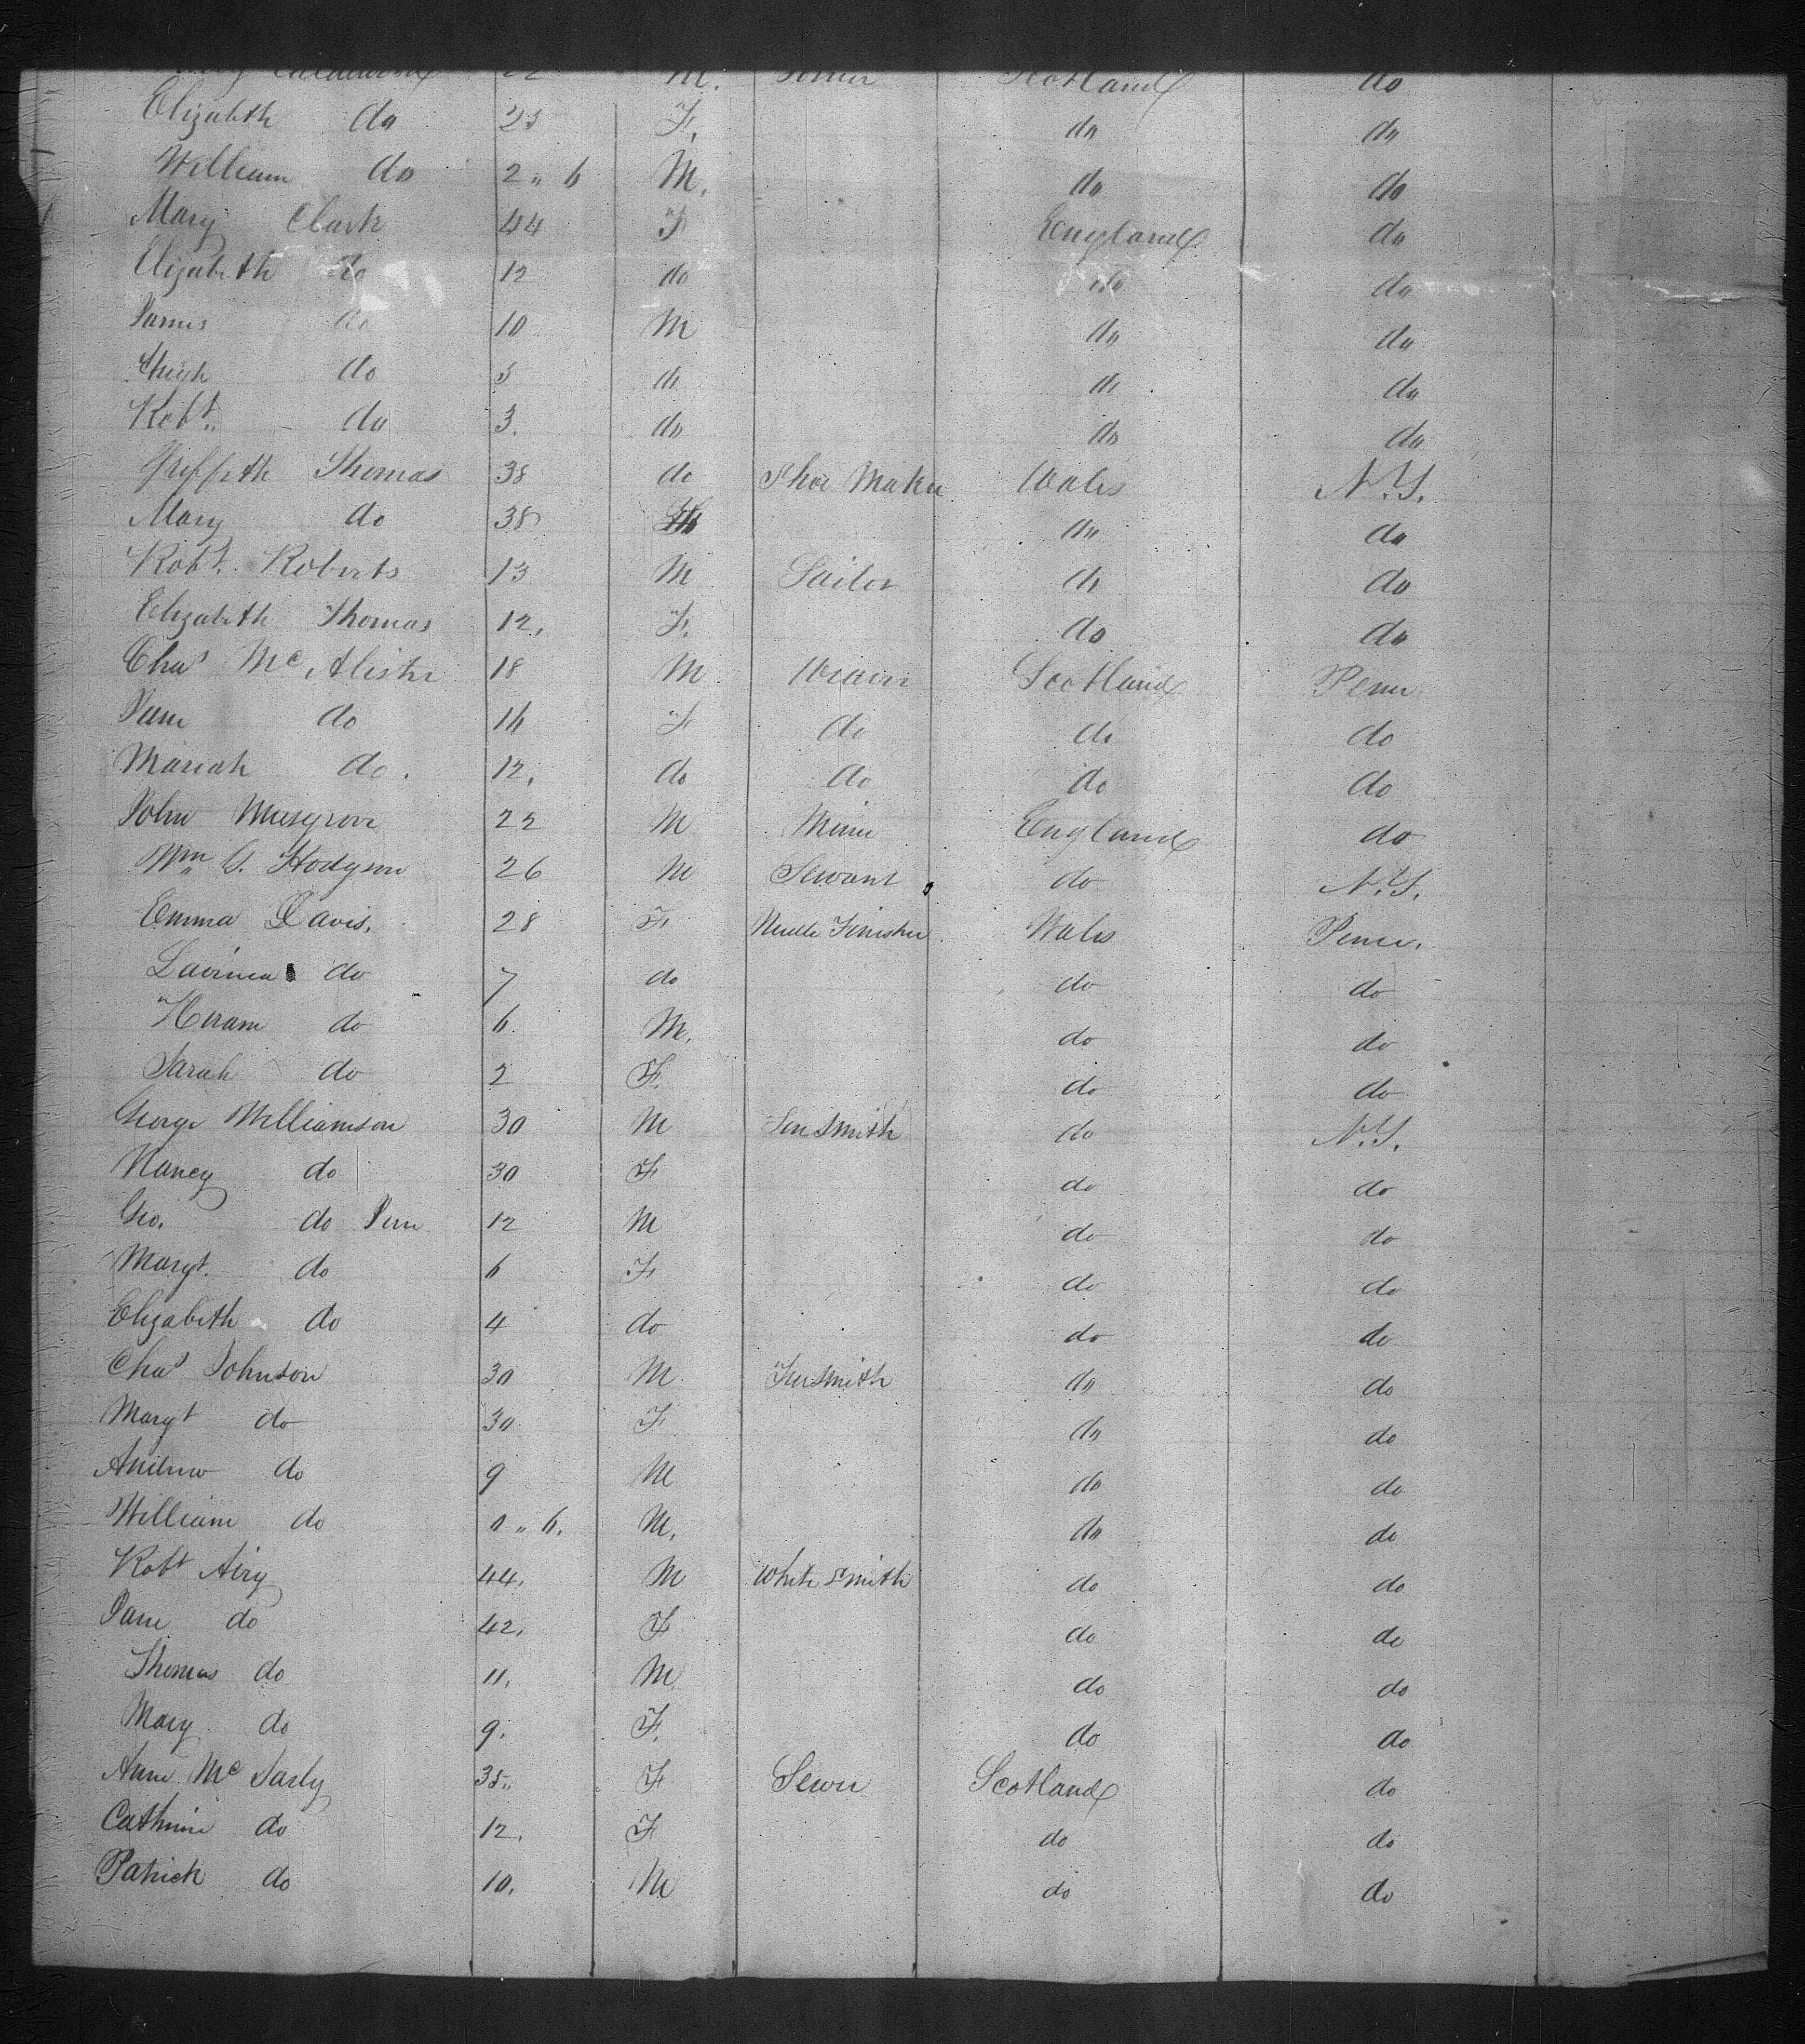 22 M. Scotland do
Elizabeth do 23 F. do do
William do 2 " 6 M. do do
Mary Clark 44 F England do
Elizabeth do 12 do do do
James do 10 M do do
Hugh do 5 do do do
Robt. do 3. do do do
Griffith Thomas 38 do Shoe Maker Wales N.Y.
Mary do 38 do do
Robt. Roberts 13 M Sailor do do
Elizabeth Thomas 12, F. do do
Chas McAlister 18 M Weaver Scotland Penn
Jane do 16 F do do do
Mariah do. 12, do do do do
John Musgrove 22 M Miner England do
Wm G. Hodgson 26 M Servant do N.Y.
Emma Davis, 28 F Needle Finisher Wales Penn.
Lavinia do 7 do do do
Hiram do 6. M. do do
Sarah do 2 F. do do
George Williamson 30 M Tin Smith do N.Y.
Nancy do 30 F do do
Geo. do Junr 12 M do do
Margt. do 6 F do do
Elizabeth do 4 do do do
Chas Johnson 30 M Tin Smith do do
Margt do 30 F do do
Andrew do 9 M do do
William do 0 " 6. M. do do
Robt Airy 44. M White Smith do do
Jane do 42. F do do
Thomas do 11. M do do
Mary do 9. F. do do
Anne Mc 35 F Sewer Scotland do
Cathrine do 12. F do do
Patrick do 10. M do do